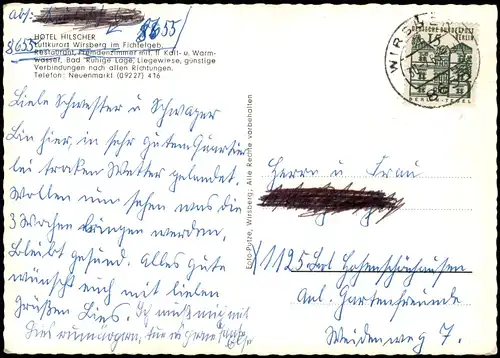 abs:
8655
8655
HOTEL HILSCHER
Luftkurort Wirsberg im Fichtelgeb.
Restaurant, Fremdenzimmer mit fl. Kalt- u. Warm-
wasser, Bad Ruhige Lage, Liegewiese, günstige
Verbindungen nach allen Richtungen.
Telefon: Neuenmarkt (09227) 416
Liebe Schwester u Schwager
Bin hier, in sehr gutem Quartier
bei trocken Wetter gelandet.
Wollen nun sehen was die
3 Wochen bringen werden.
Bleibt gesund. Alles Gute
wünscht euch mit lieben
Grüßen Lies. Ich muß mich mit
Foto-Putze, Wirsberg; Alle Rechte vorbehalten
DEUTSCHE BUNDESPOST
BERLIN
BERLIN-TEGEL
WIRSBERG
Herrn u Frau
1125 Bln Hohenschönhausen
Anl. Gartenfreunde
Weidenweg 7.